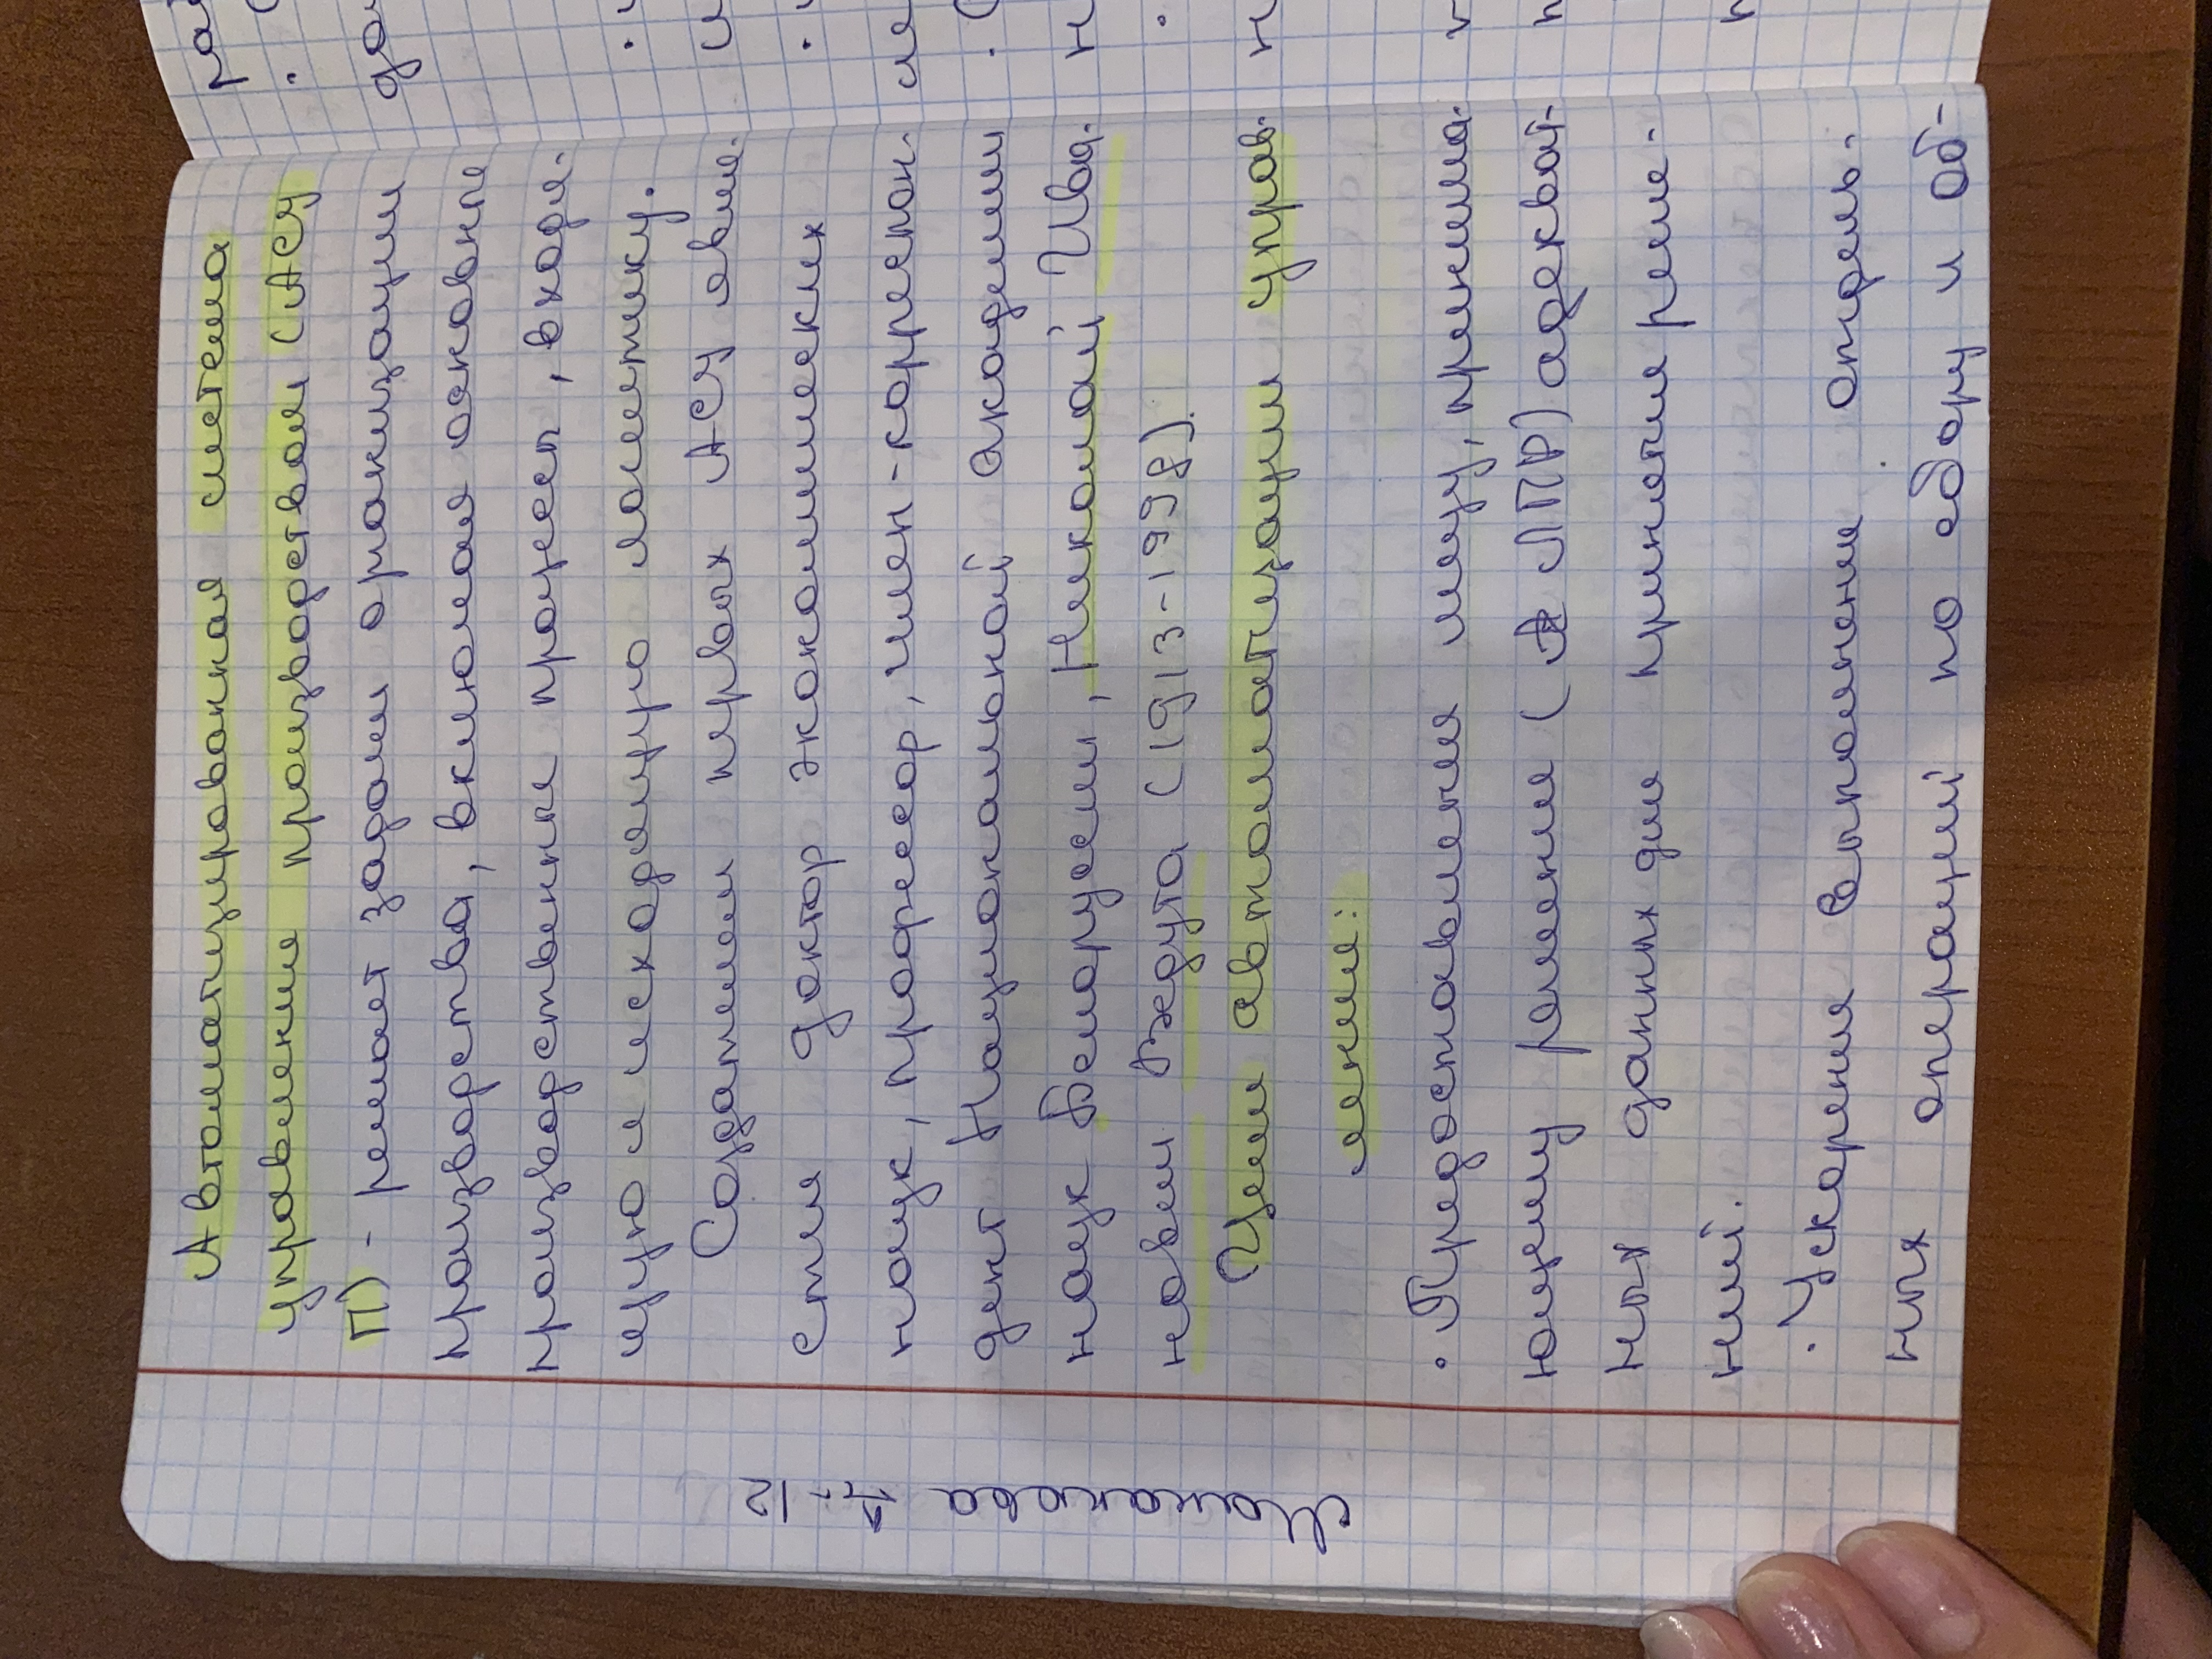 Автоматизированная система
управления производством (АСУ
П) - решает задачи организации
производства, включая основные
производственные процессы, входя-
щую и исходящую логистику.
Создателем первых АСУ явля-
ется доктор экономических
наук, профессор, член-корреспон-
дент Национальной академии
наук Белоруссии, Николай Ива-
нович Ведута (1913-1998).
Цели автоматизации управ-
ления:
• Предоставление лицу, принима-
ющему решение (ЛПР) адекват-
ных данных для принятия реше-
ний.
• Ускорение выполнения отдель-
ных операций по сбору и об-
Маканова